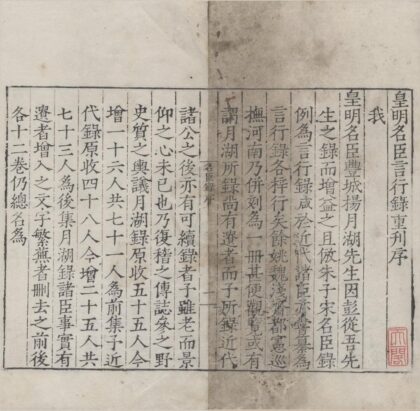 皇明名臣言行錄重刊序
我
皇明名臣豐城揚月湖先生因彭從吾先
生之錄而增益之且倣朱子宋名臣錄
例為言行錄咸於近代諸臣亦嘗纂為
言行錄各梓行矣餘姚魏淺齋都憲巡
撫河南乃併刻為一冊甚便觀覽或有
謂月湖所錄尚有遺者而予所錄近代
名臣錄序
諸公之後亦有可續錄者予雖老而景
仰之心未已也乃復稽之傳誌叅之野
史質之輿議月湖錄原收五十五人今
增一十六人共七十一人為前集予近
代錄原收四十八人今增二十五人共
七十三人為後集月湖錄諸臣事實有
遺者增入之文字繁蕪者刪去之前後
各十二卷仍總名為